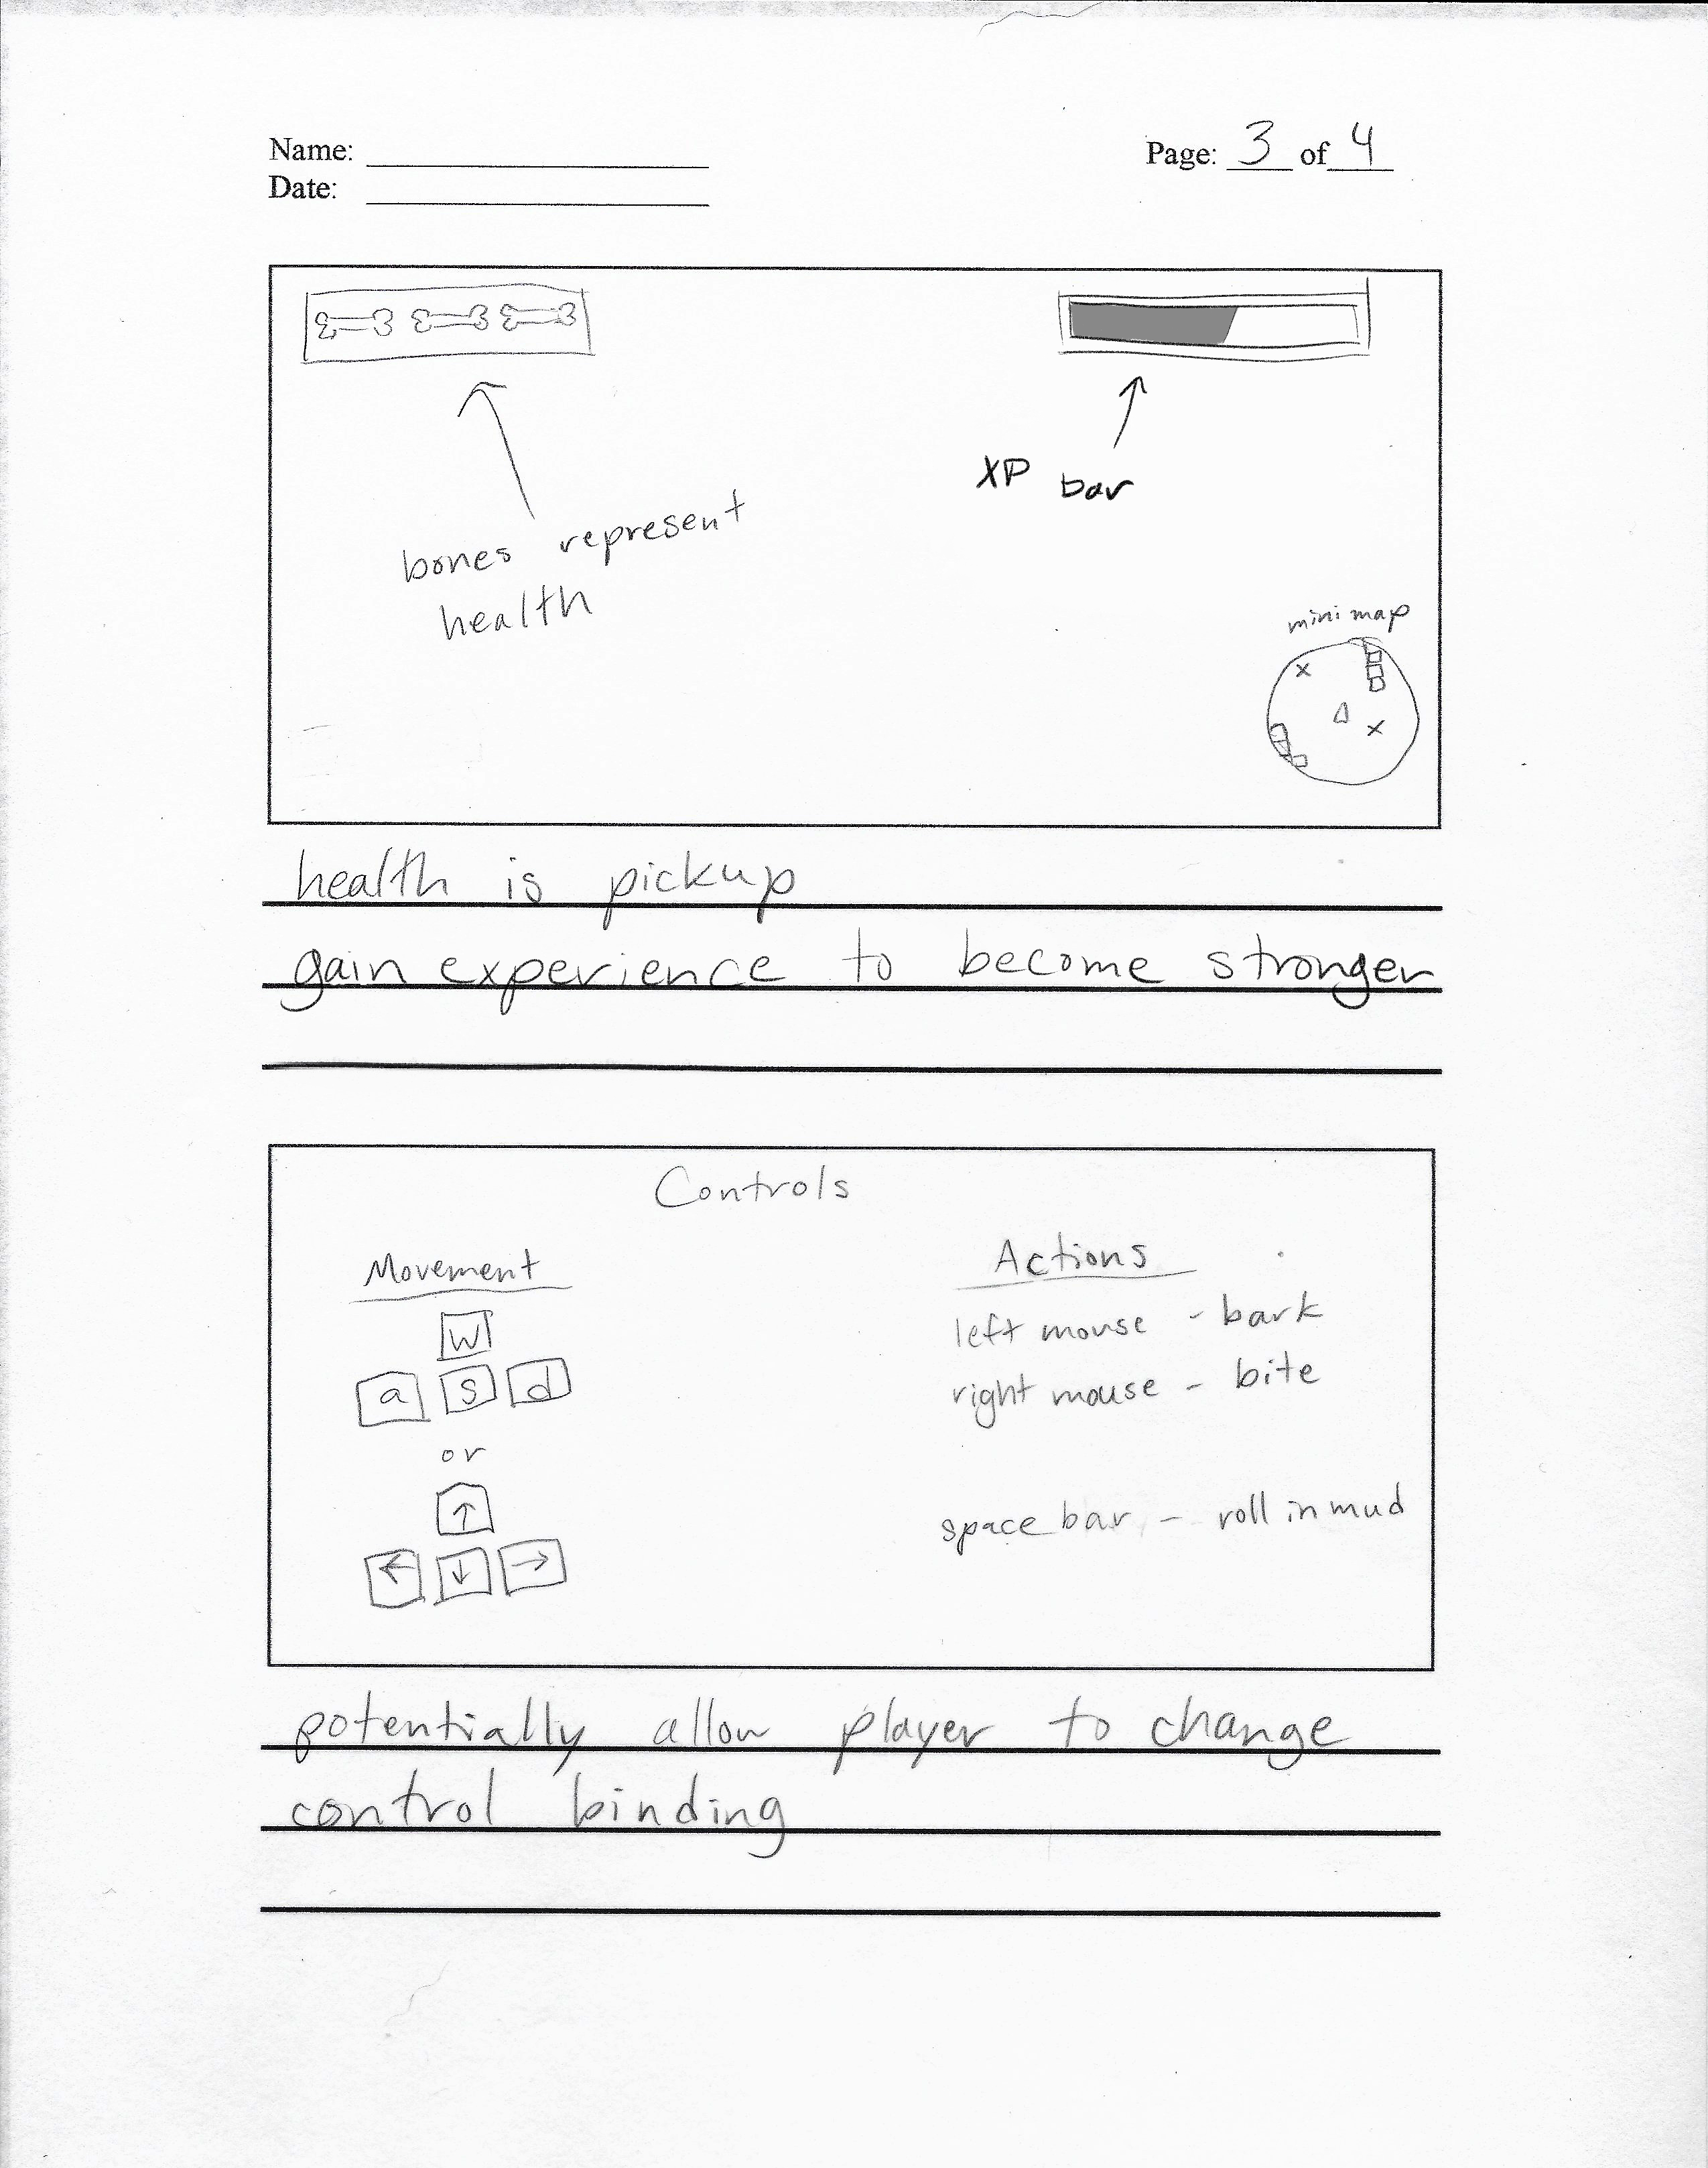 Name:
Page: 3 of 4
Date:
XP bar
bones represent
health
mini map
x
x
health is pickup
gain experience to become stronger
Controls
Movement
Actions
W
left mouse - bark
a s d
right mouse - bite
or
↑
space bar - roll in mud
← ↓ →
potentially allow player to change
control binding